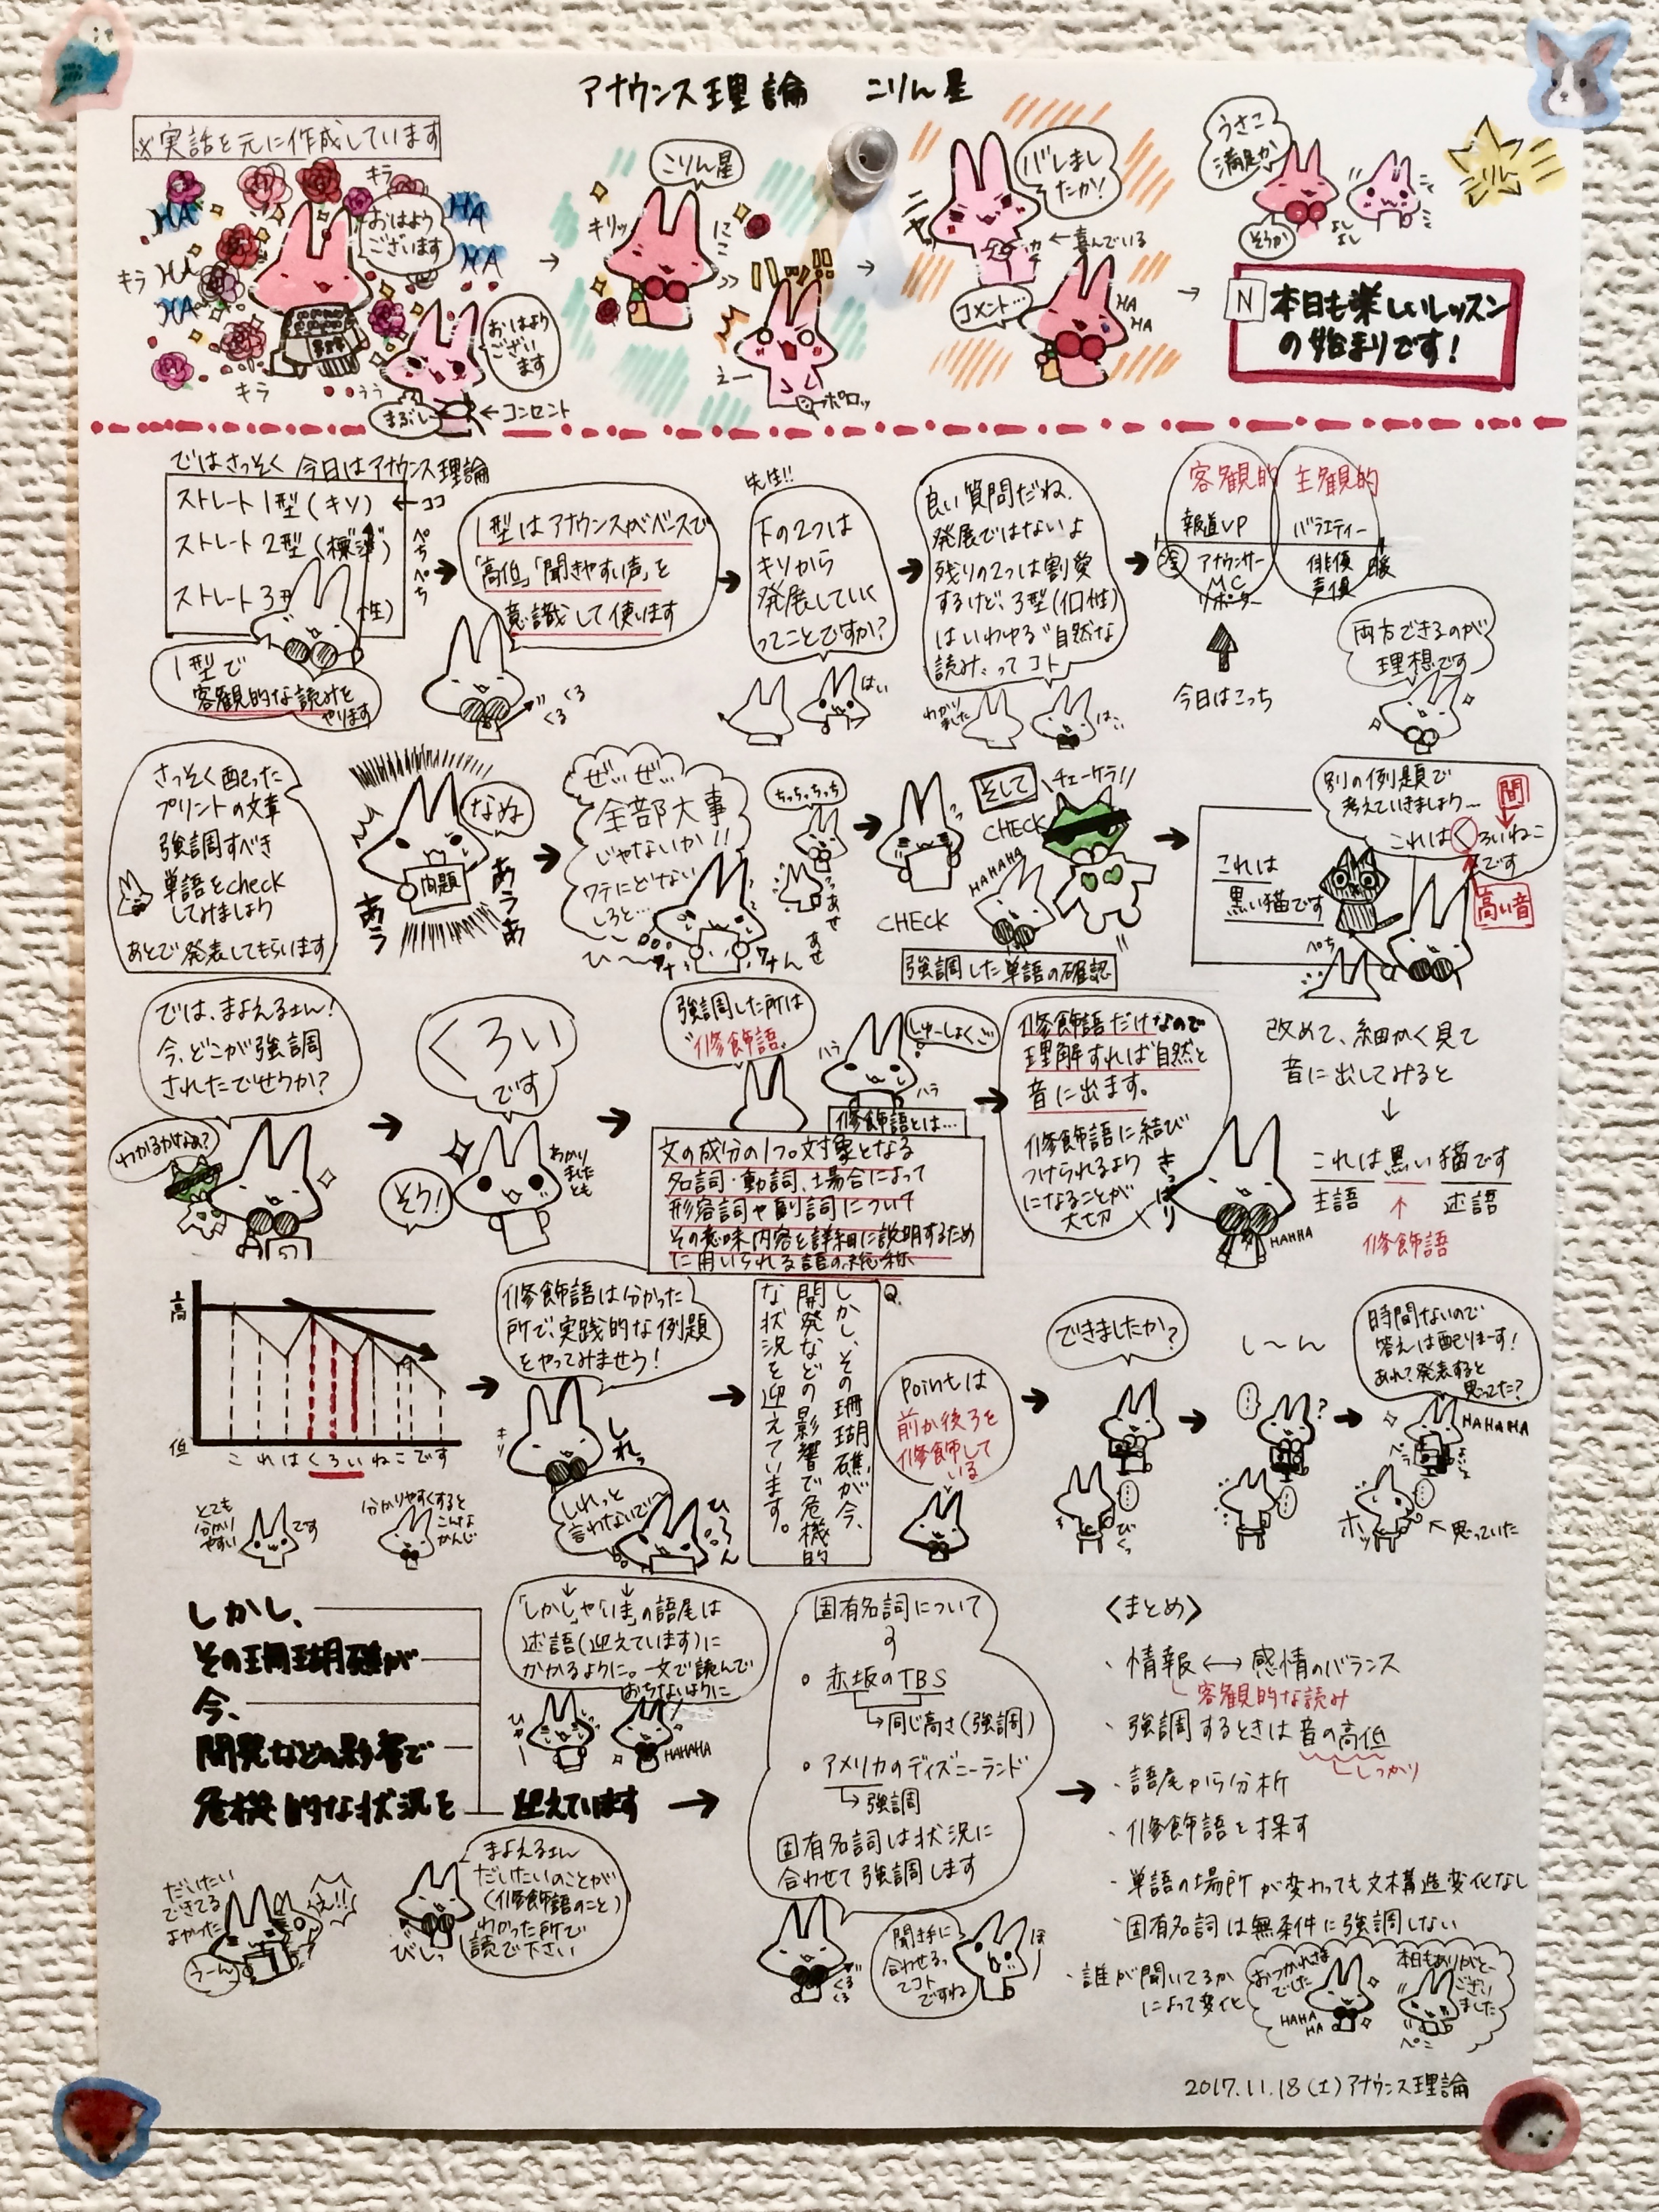 アナウンス理論 こりん星
※実話を元に作成しています
キラ
おはよう
ございます
HA
HA
HA
HA
HA
キラ
キラ
おはよう
ござい
ます
まぶし
←コンセント
→
こりん星
キリッ
にこ
えー
ポロッ
→
バレまし
たか!
ニヤ
←喜んでいる
コメント…
HA
HA
→
うさこ
満足か
そうか
よし
よし
こりん
N 本日も楽しいレッスン
の始まりです!
ではさっそく 今日はアナウンス理論
ストレート1型(キソ) ←ココ
ストレート2型(標準)
ストレート3型
性)
ぺちぺち
1型で
客観的な読みを
やります
1型はアナウンスがベースで
「高低」「聞きやすい声」を
意識して使います
くる
くる
先生!!
下の2つは
キソから
発展していく
ってことですか?
はい
良い質問だね、
発展ではないよ
残りの2つは割愛
するけど、3型(個性)
はいわゆる"自然な
読み"ってコト
わかり
ました
客観的 主観的
報道VP バラエティー
アナウンサー 俳優
MC 声優
リポーター
今日はこっち
両方できるのが
理想です
さっそく配った
プリントの文章
強調すべき
単語をcheck
してみましょう
あとで発表してもらいます
なぬ
問題
あう
あうあ
ぜ…ぜ…
全部大事
じゃないか!!
ワテにどない
しろと…
ひ〜
ちっちっちっち
あせ
あせ
そして
チェーケラ!!
CHECK
HAHAHA
CHECK
強調した単語の確認
別の例題で
考えていきましょう…
間
これはくろいねこ
です
高い音
これは
黒い猫です
ぺち
では、まよえる士ん!
今、どこが強調
されたでせうか?
わかるかなぁ?
くろい
です
そう!
わかり
ました
とも
強調した所は
"修飾語"
しゅーしょくご
ハラ
ハラ
修飾語とは…
文の成分の1つ。対象となる
名詞・動詞、場合によって
形容詞や副詞について
その意味内容を詳細に説明するため
に用いられる語の総称
修飾語だけなので
理解すれば自然と
音に出ます。
修飾語に結び
つけられるよう
になることが
大切
きっぱり
HAHHA
改めて、細かく見て
音に出してみると
↓
これは黒い猫です
主語 ↑ 述語
修飾語
高
低
これはくろいねこです
とても
分かり
やすい
です
分かりやすくすると
こんな
かんじ
修飾語は分かった
所で、実践的な例題
をやってみませう!
キリ
しれっ
しれっと
言わないで〜
Q.
しかし、その珊瑚礁が、今、
開発などの影響で危機的
な状況を迎えています。
Pointは
前が後ろを
修飾して
いる
できましたか?
びくっ
し〜ん
?
時間ないので
答えは配りまーす!
あれ?発表すると
思ってた?
HAHAHA
ホッ
↖思っていた
しかし、
その珊瑚礁が
今、
開発などの影響で
危機的な状況を 迎えています
「しかし」や「いま」の語尾は
述語(迎えています)に
かかるように。一文で読んで
おちないように
HAHAHA
だいたい
できてる
よかった
うーん
え!!
まよえる士ん
だいたいのことが
(修飾語のこと)
わかった所で
読で下さい
びしっ
固有名詞について
∘ 赤坂のTBS
→同じ高さ(強調)
∘ アメリカのディズニーランド
→強調
固有名詞は状況に
合わせて強調します
ぐる
ぐる
聞き手に
合わせるっ
てコト
ですね
ほ
〈まとめ〉
・情報⟷感情のバランス
客観的な読み
・強調するときは音の高低
しっかり
・語尾から分析
・修飾語を探す
・単語の場所が変わっても文構造変化なし
・固有名詞は無条件に強調しない
・誰が聞いてるか
によって変化
おつかれさま
でした
HAHA
HA
本日もありがとー
ござい
ました
ぺこ
2017.11.18(土)アナウンス理論